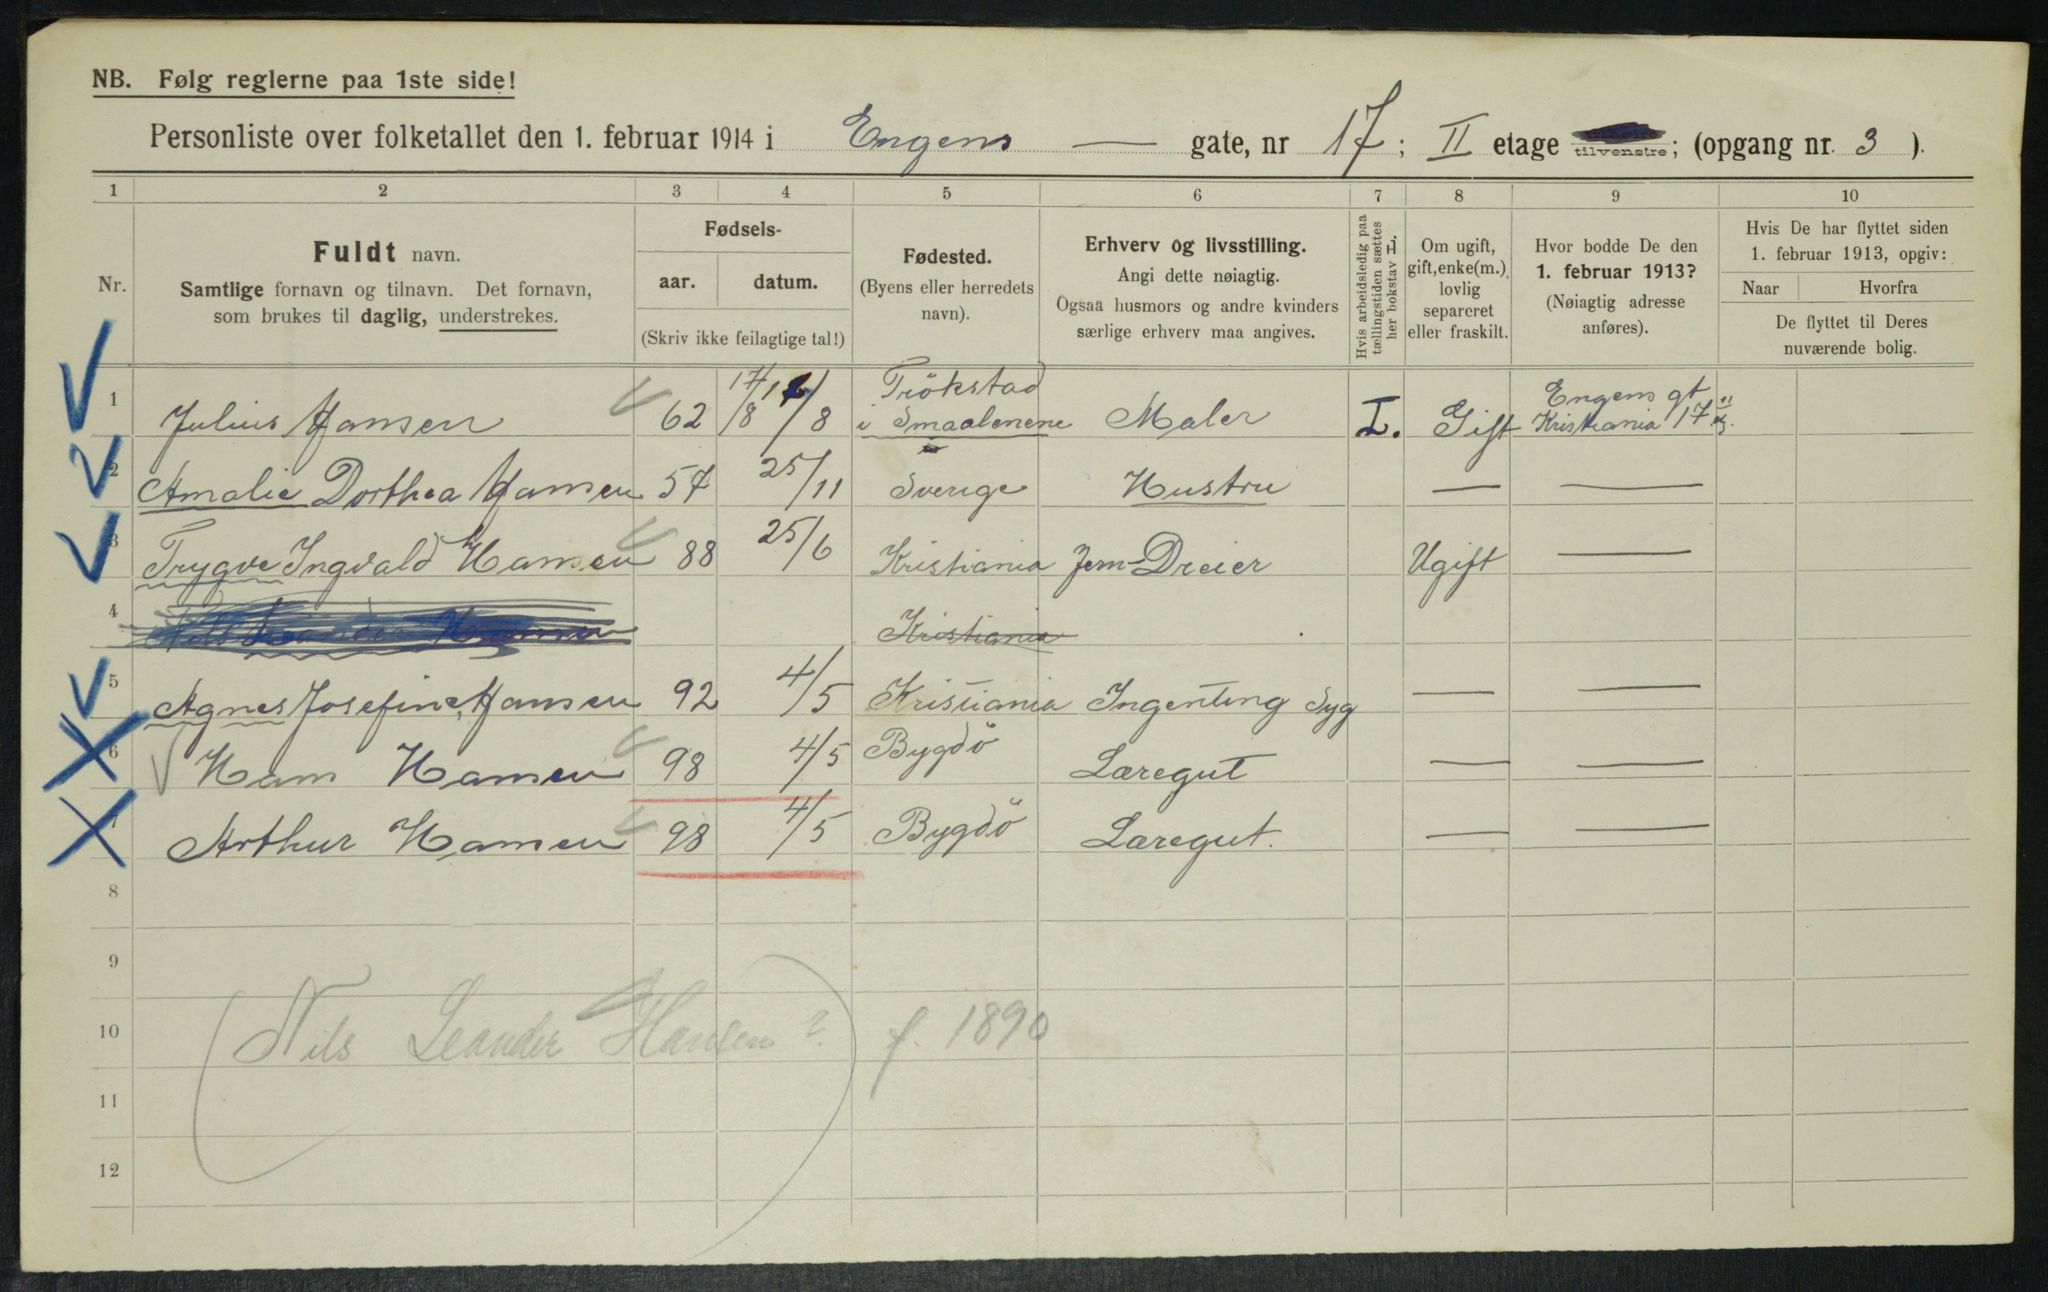 NB. Følg reglerne paa 1ste side!
Personliste over folketallet den 1. februar 1914 i Engens — gate, nr 17; II etage tilvenstre; (opgang nr. 3).
1 2 3 4 5 6 7 8 9 10
Nr.
Fuldt navn.
Samtlige fornavn og tilnavn. Det fornavn,
som brukes til daglig, understrekes.
Fødsels-
aar. datum.
(Skriv ikke feilagtige tal!)
Fødested.
(Byens eller herredets
navn).
Erhverv og livsstilling.
Angi dette nøiagtig.
Ogsaa husmors og andre kvinders
særlige erhverv maa angives.
Hvis arbeidsledig paa
tællingstiden sættes
her bokstav L.
Om ugift,
gift, enke(m.),
lovlig
separeret
eller fraskilt.
Hvor bodde De den
1. februar 1913?
(Nøiagtig adresse
anføres).
Hvis De har flyttet siden
1. februar 1913, opgiv:
Naar Hvorfra
De flyttet til Deres
nuværende bolig.
1 Julius Hansen 62 17/8 /8 Trökstad i Smaalenene Maler I. Gift Engens gt Kristiania 17
2 Amalie Dorthea Hansen 57 25/11 Sverige Hustru — —
3 Trygve Ingvald Hansen 88 25/6 Kristiania Jern-Dreier Ugift —
4 Kristiania
5 Agnes Josefine Hansen 92 4/5 Kristiania Ingenting Syg — —
6 Hans Hansen 98 4/5 Bygdö Læregut — —
7 Arthur Hansen 98 4/5 Bygdö Læregut. — —
8
9
10 (Nils Leander Hansen?) f. 1890
11
12